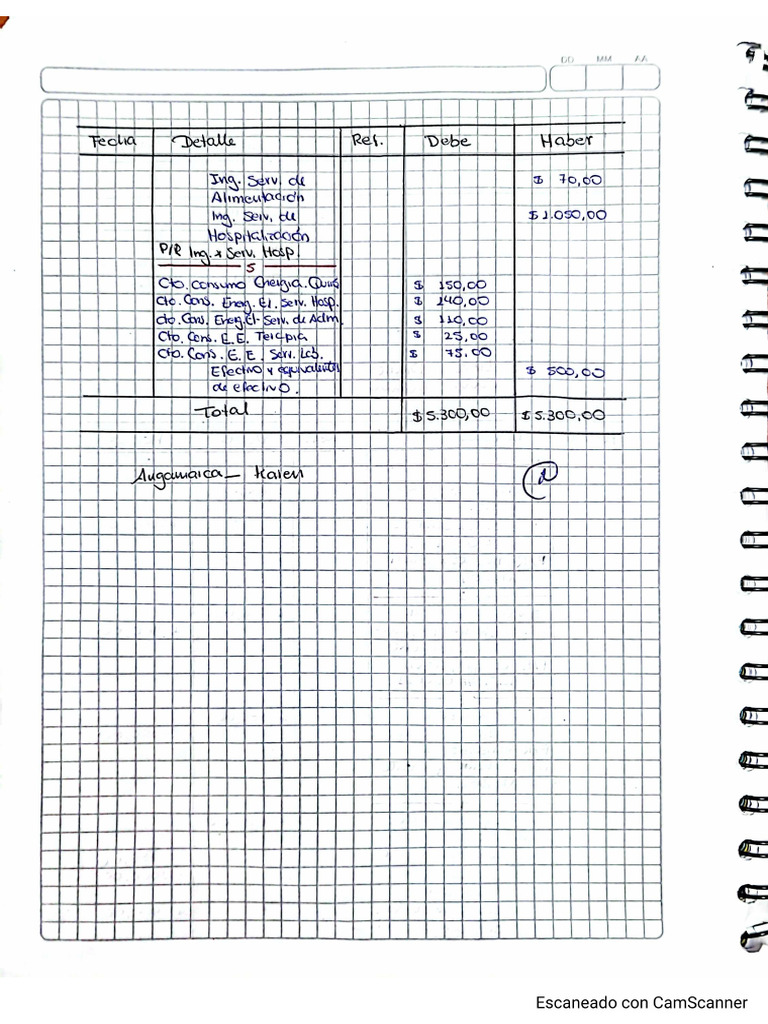 DD MM AA
Fecha Detalle Ref. Debe Haber
Ing. Serv. de $ 70,00
Alimentación
Ing. Serv. de $ 1.050,00
Hospitalización
P/R Ing. x Serv. Hosp.
5
Cto. Consumo Energía. Quiró $ 150,00
Cto. Cons. Energ. El. Serv. Hosp. $ 140,00
Cto. Cons. Energ. El. Serv. de Adm $ 110,00
Cto. Cons. E.E. Terapia $ 25,00
Cto. Cons. E.E. Serv. Lab. $ 75.00
Efectivo y equivalentes $ 500,00
de efectivo.
Total $ 5.300,00 $ 5.300,00
Augamaica – Karen
Escaneado con CamScanner